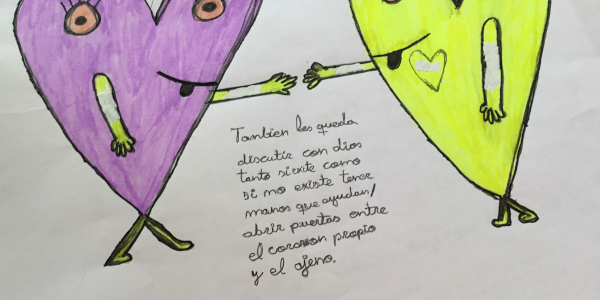 Tanbien les queda
discutir con dios
tanto si existe como
si no existe tener
manos que ayudan/
abrir puertas entre
el corazon propio
y el ajeno.